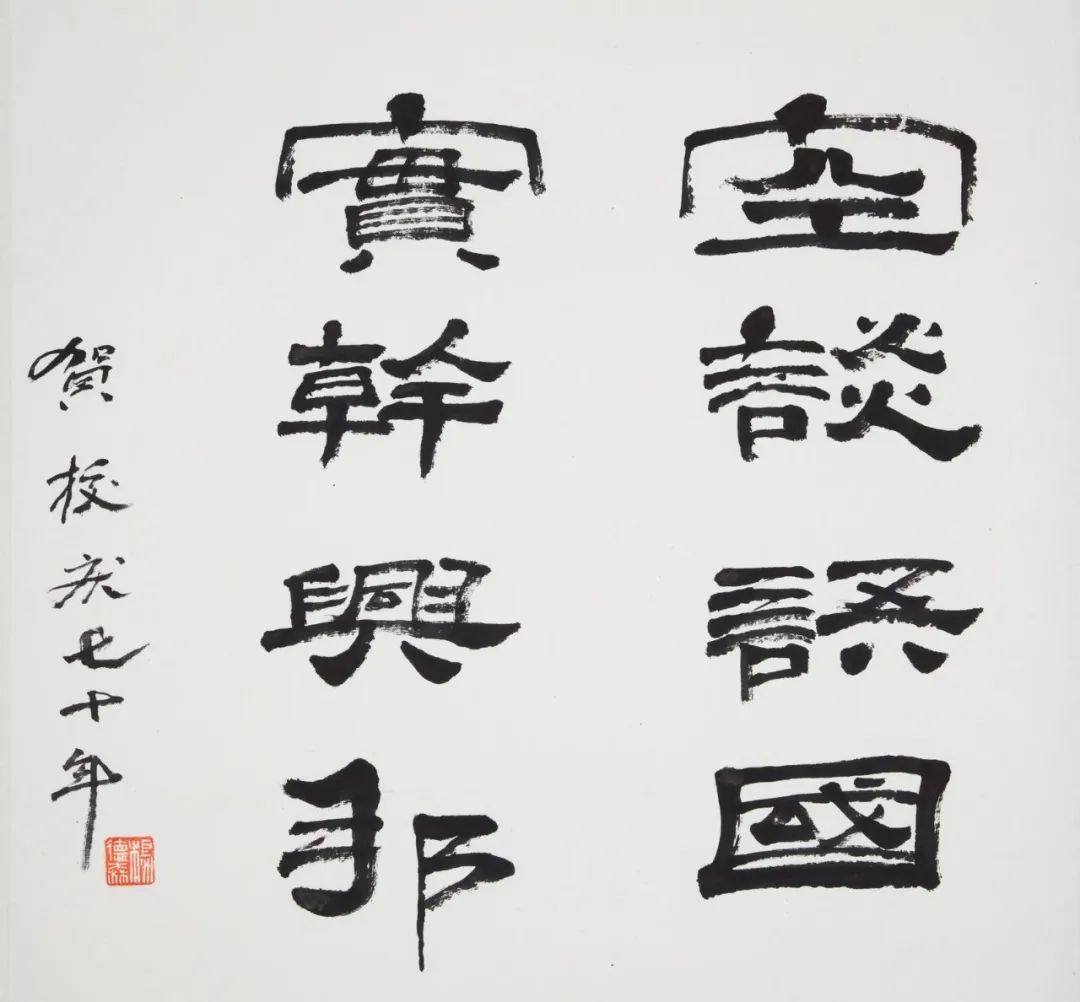 空談誤國
實幹興邦
賀校庆七十年